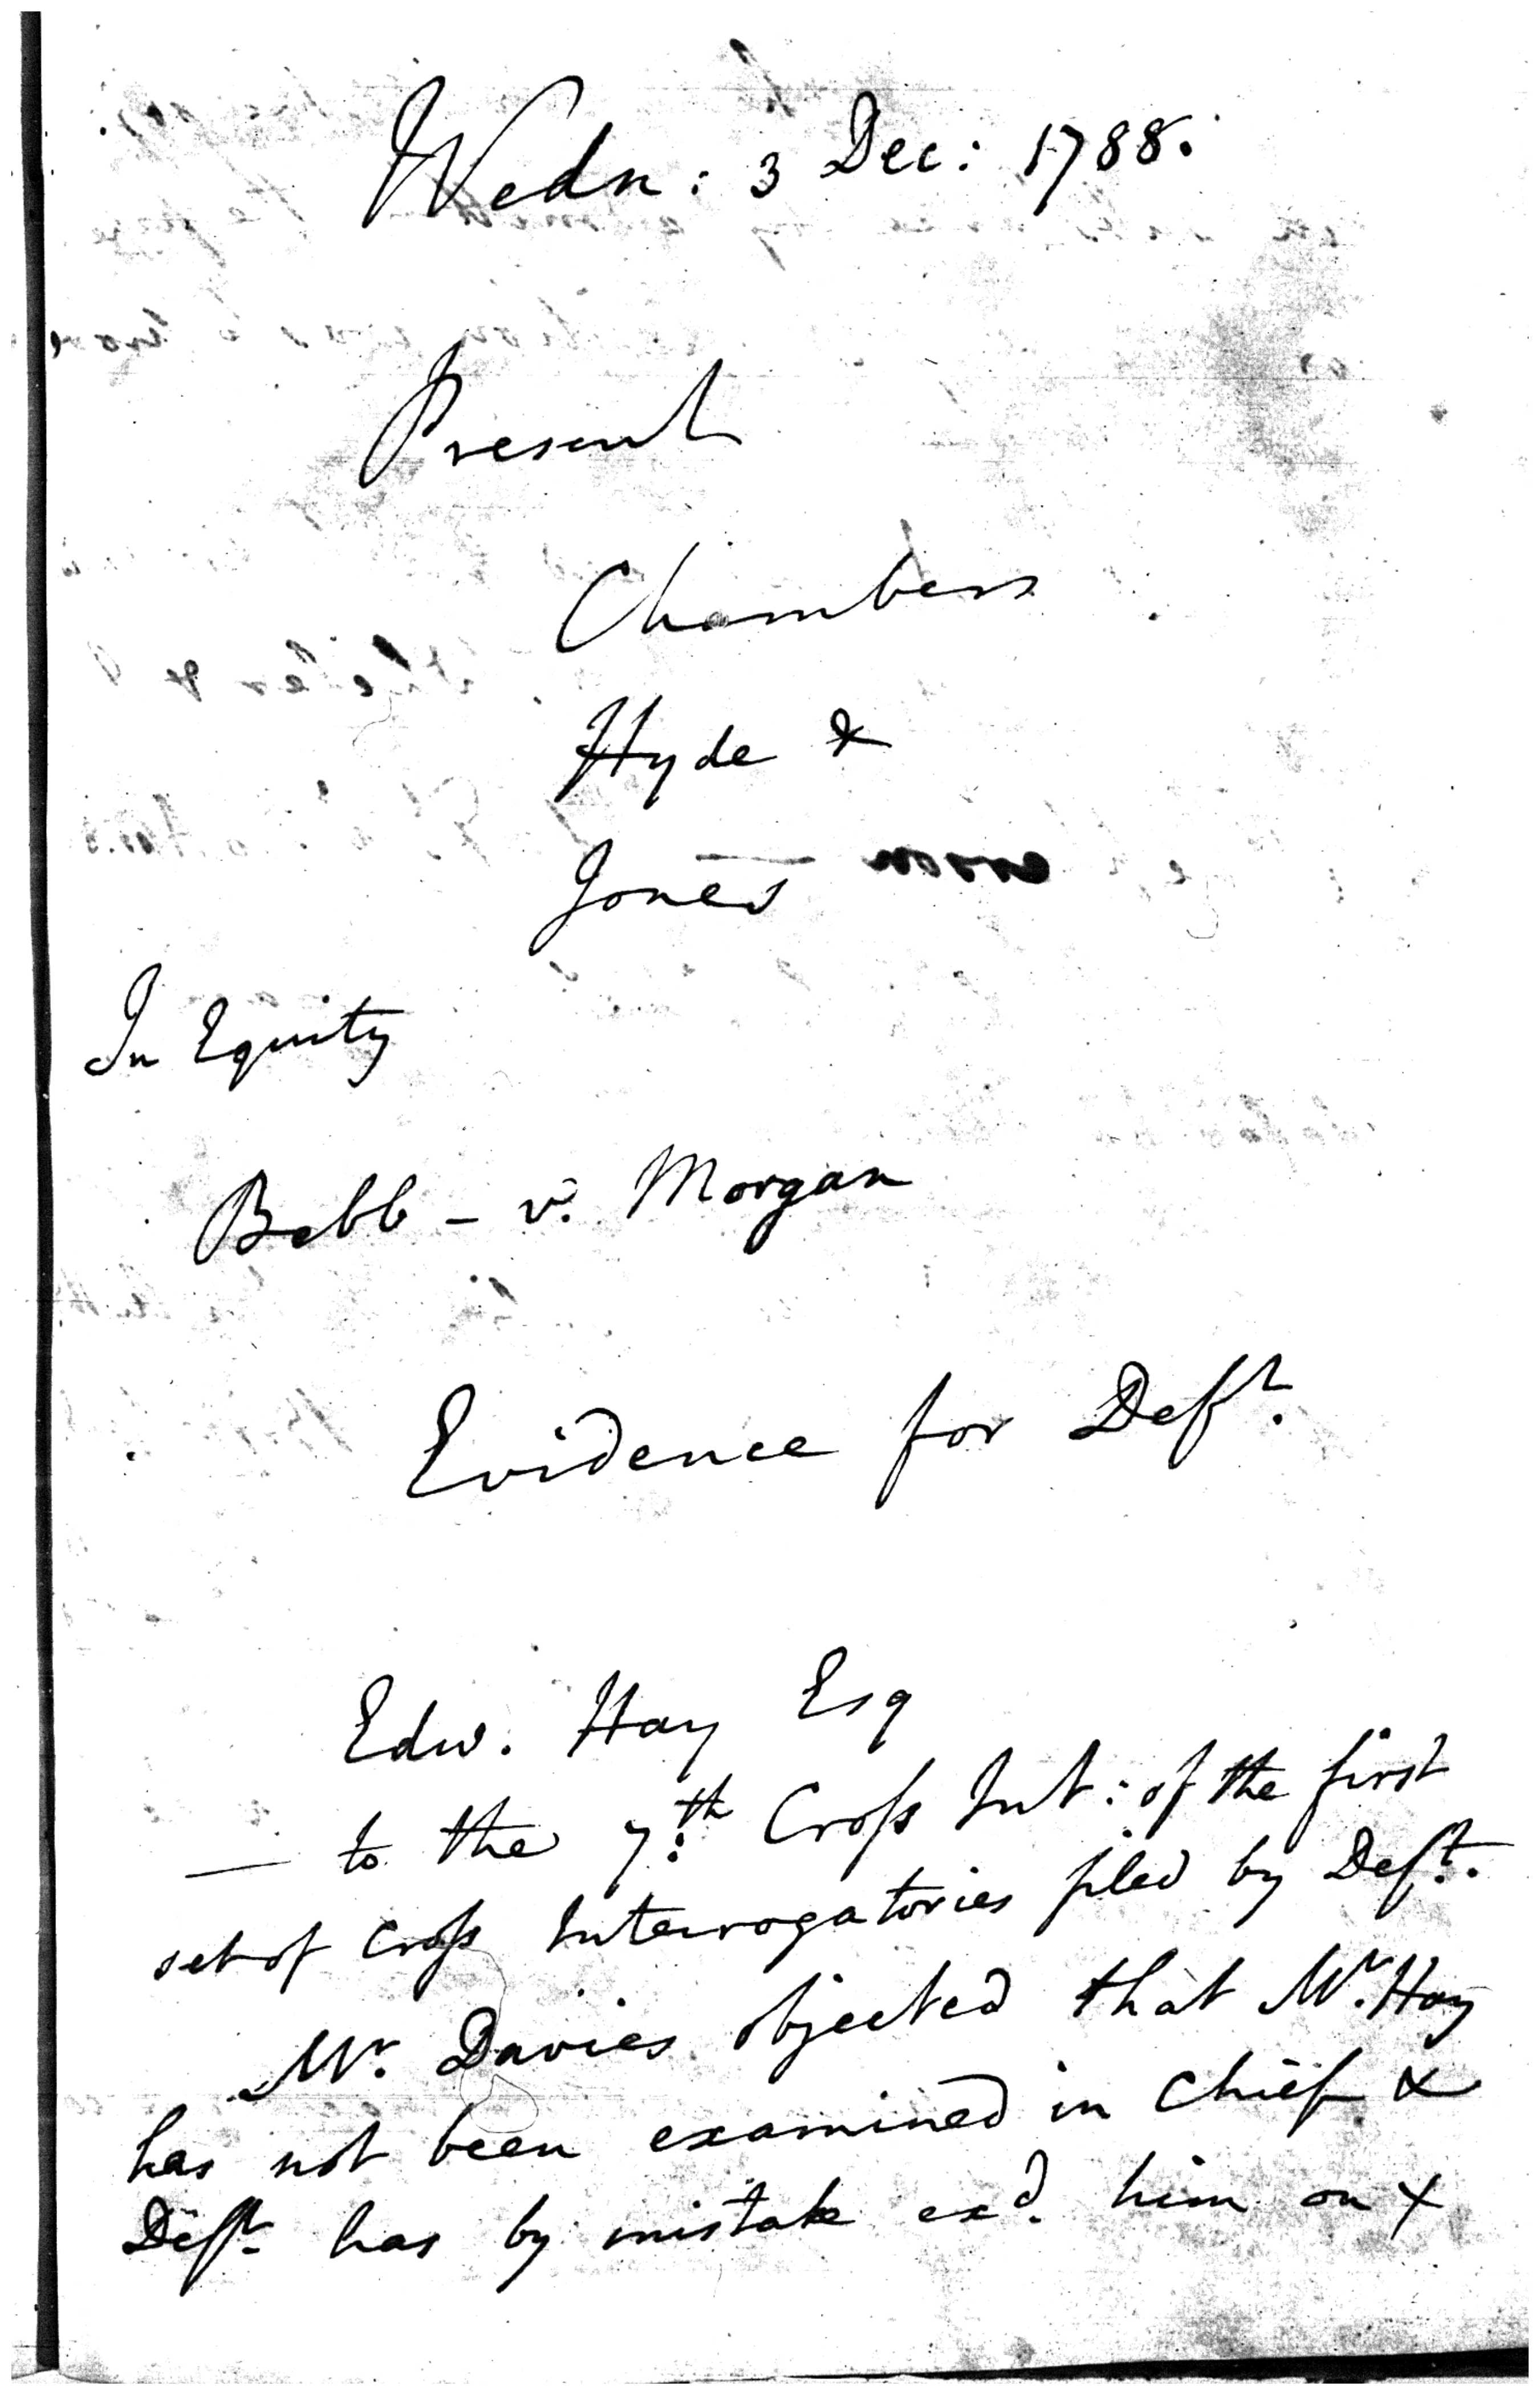 Wedn: 3 Dec: 1788.
Present
Chambers
Hyde &
Jones
In Equity
Bebb - v. Morgan
Evidence for Deft.
Edw. Hay Esq
— to the 7th. Cross Int: of the first
set of Cross Interrogatories filed by Deft.
Mr. Davies objected that Mr. Hay
has not been examined in chief &
Deft. has by mistake exd. him on X